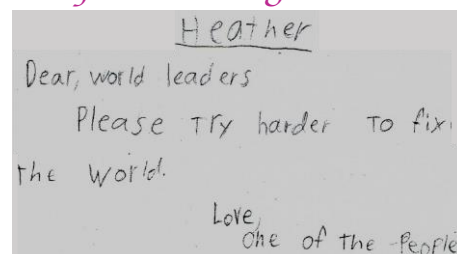 Heather
Dear, world leaders
Please Try harder To fix
the world.
Love,
One of the People